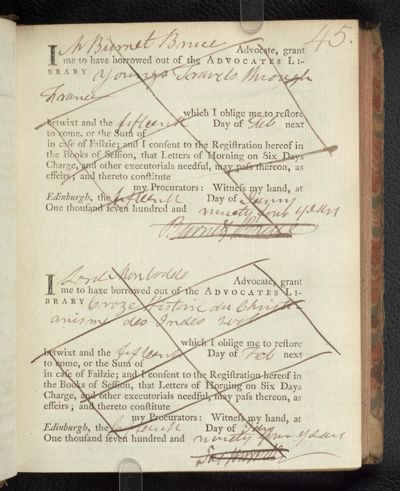 45.
I Mr Burnet Bruce Advocate, grant
me to have borrowed out of the ADVOCATES LI-
BRARY Youngs Travels through
France
which I oblige me to reſtore
betwixt and the fifteenth Day of Feb next
to come, or the Sum of
in caſe of Failzie; and I conſent to the Regiſtration hereof in
the Books of Seſſion, that Letters of Horning on Six Days
Charge, and other executorials needful, may paſs thereon, as
effeirs; and thereto conſtitute
my Procurators: Witneſs my hand, at
Edinburgh, the fifteenth Day of
One thouſand ſeven hundred and ninety four years
Burnet Bruce
I Lord Monboddo Advocate, grant
me to have borrowed out of the ADVOCATES LI-
BRARY Croze Histoire du Christi
anisme des Indes
which I oblige me to reſtore
betwixt and the fifteenth Day of Feb next
to come, or the Sum of
in caſe of Failzie; and I conſent to the Regiſtration hereof in
the Books of Seſſion, that Letters of Horning on Six Days
Charge, and other executorials needful, may paſs thereon, as
effeirs; and thereto conſtitute
my Procurators: Witneſs my hand, at
Edinburgh, the fifteenth Day of Jan
One thouſand ſeven hundred and ninety four years